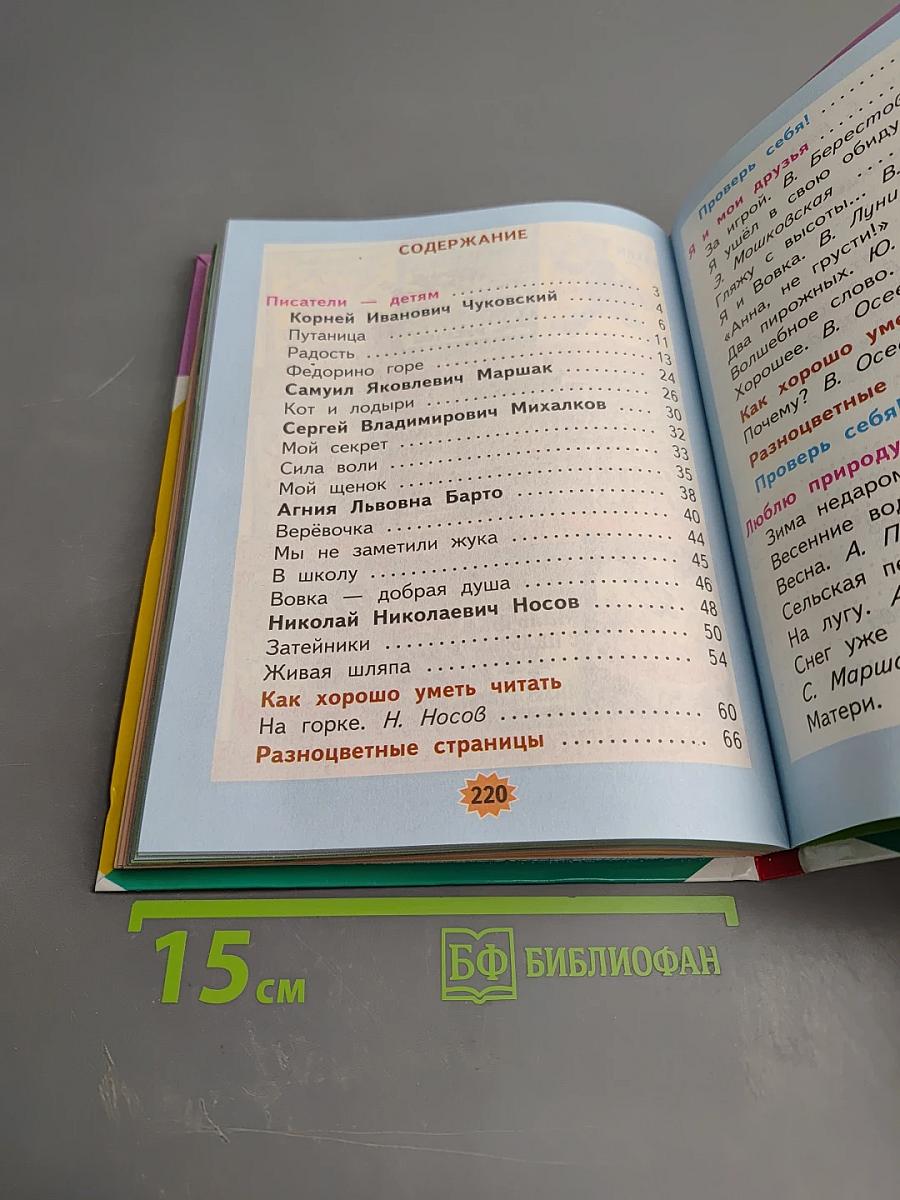 СОДЕРЖАНИЕ
Писатели — детям ........ 3
Корней Иванович Чуковский ........ 4
Путаница ........ 6
Радость ........ 11
Федорино горе ........ 13
Самуил Яковлевич Маршак ........ 24
Кот и лодыри ........ 26
Сергей Владимирович Михалков .... 30
Мой секрет ........ 32
Сила воли ........ 33
Мой щенок ........ 35
Агния Львовна Барто ........ 38
Верёвочка ........ 40
Мы не заметили жука ........ 44
В школу ........ 45
Вовка — добрая душа ........ 46
Николай Николаевич Носов ........ 48
Затейники ........ 50
Живая шляпа ........ 54
Как хорошо уметь читать
На горке. Н. Носов ........ 60
Разноцветные страницы ........ 66
220
Проверь себя! ........
Я и мои друзья ........
За игрой. В. Берестов
Я ушёл в свою обиду
Э. Мошковская ....
Гляжу с высоты... В.
Я и Вовка. В. Луни
«Анна, не грусти!»
Два пирожных. Ю.
Волшебное слово.
Хорошее. В. Осе
Как хорошо уме
Почему? В. Осе
Разноцветные
Проверь себя!
Люблю природу
Зима недаром
Весенние вод
Весна. А. П
Сельская пе
На лугу. А
Снег уже
С. Марша
Матери.
15 см
БФ БИБЛИОФАН